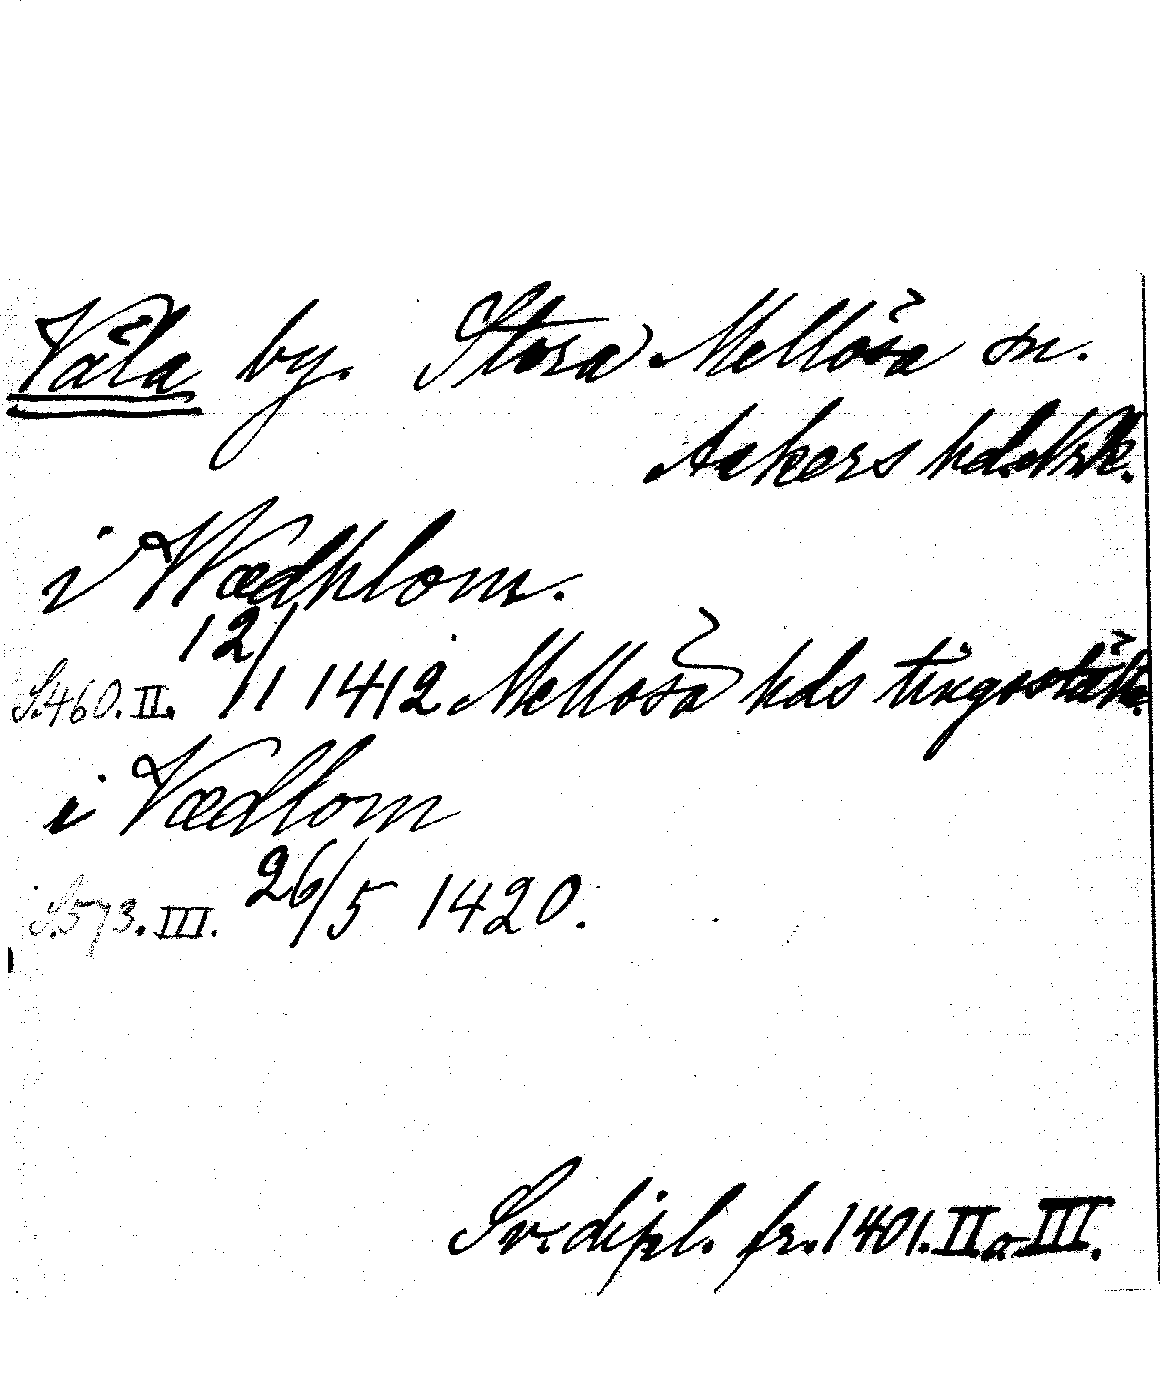 Väla by. Stora Mellösa sn.
Askers hd. Nrke.
i Wædhlom.
S. 460. II. 12/1 1412 Mellösa hds tingsställe.
i Vædlom
S. 573. III. 26/5 1420.
Sv. dipl. fr. 1401. II o III.